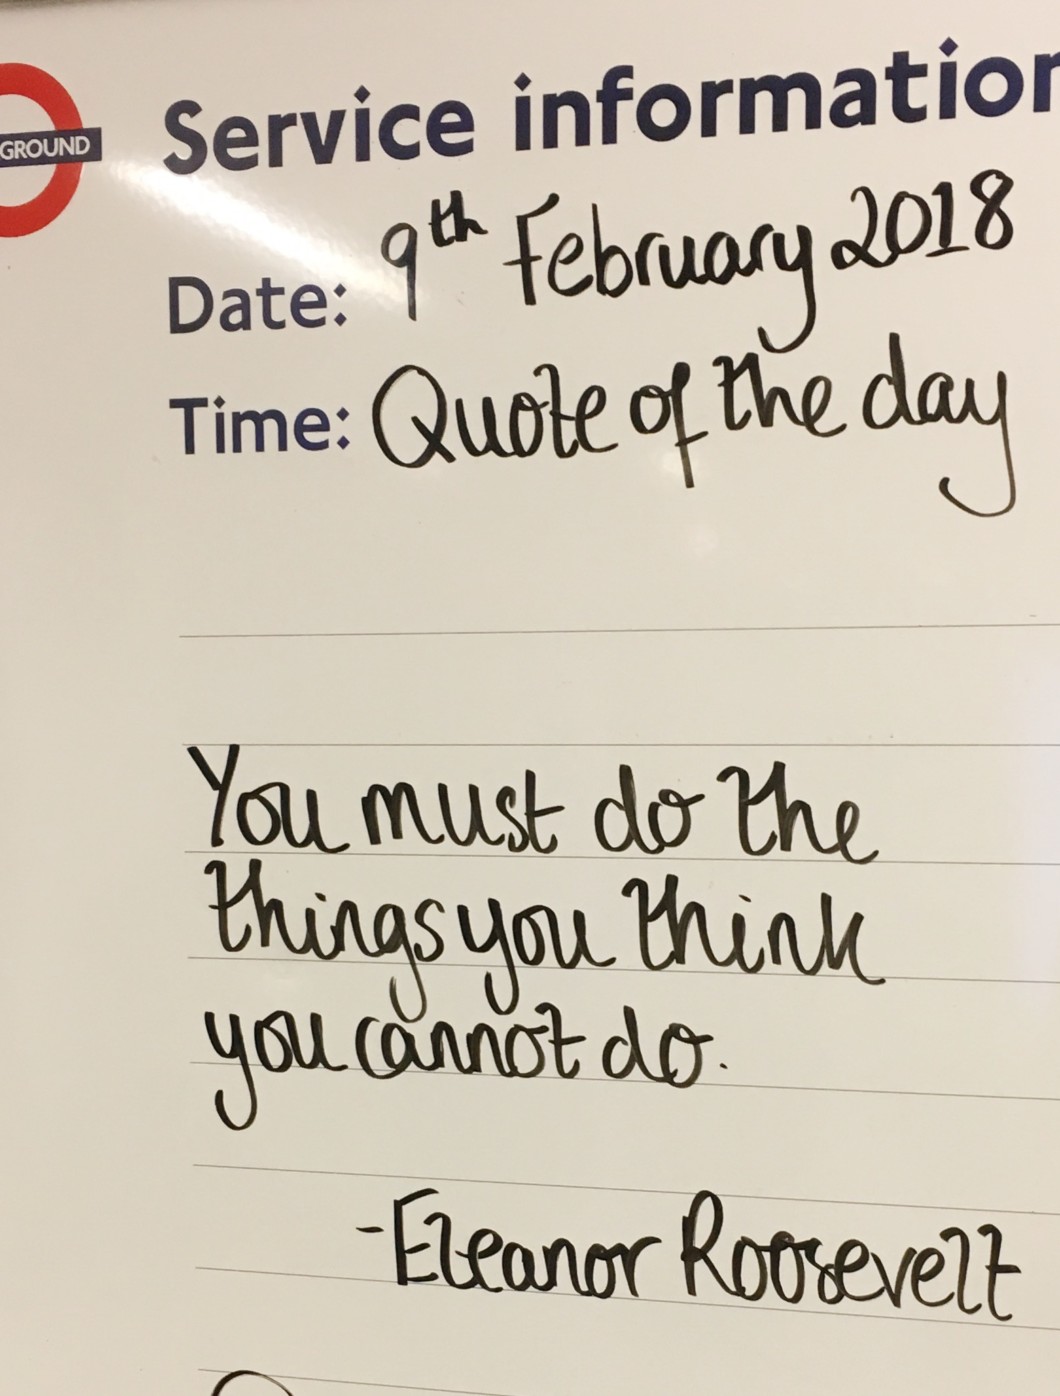 GROUND
Service information
Date: 9th February 2018
Time: Quote of the day
You must do the
things you think
you cannot do.
-Eleanor Roosevelt